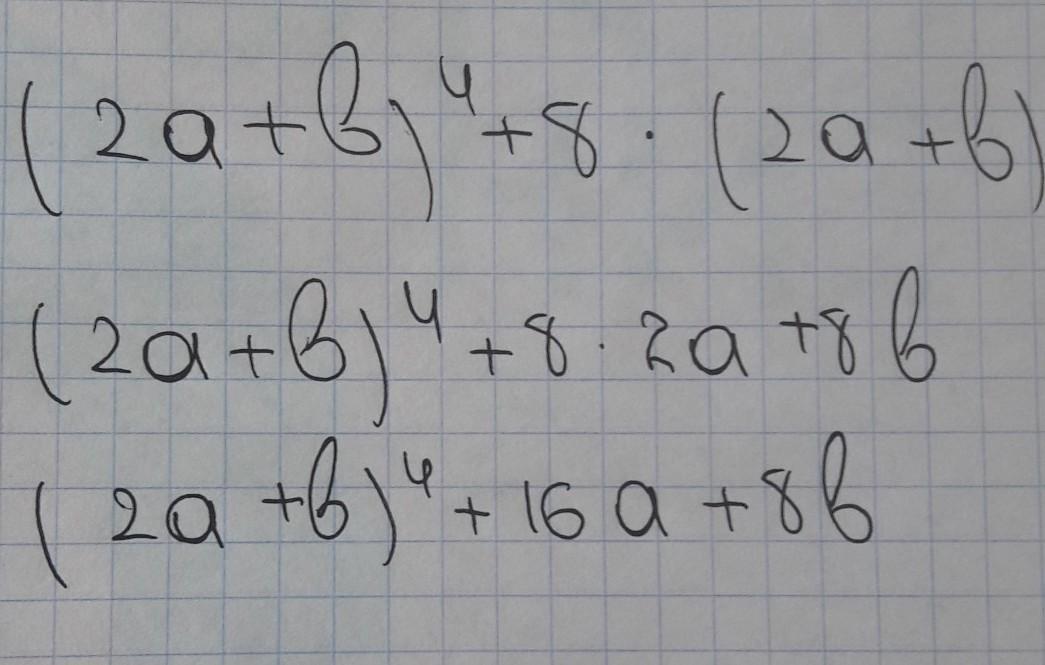 (2a+b)⁴+8·(2a+b)
(2a+b)⁴+8·2a+8b
(2a+b)⁴+16a+8b